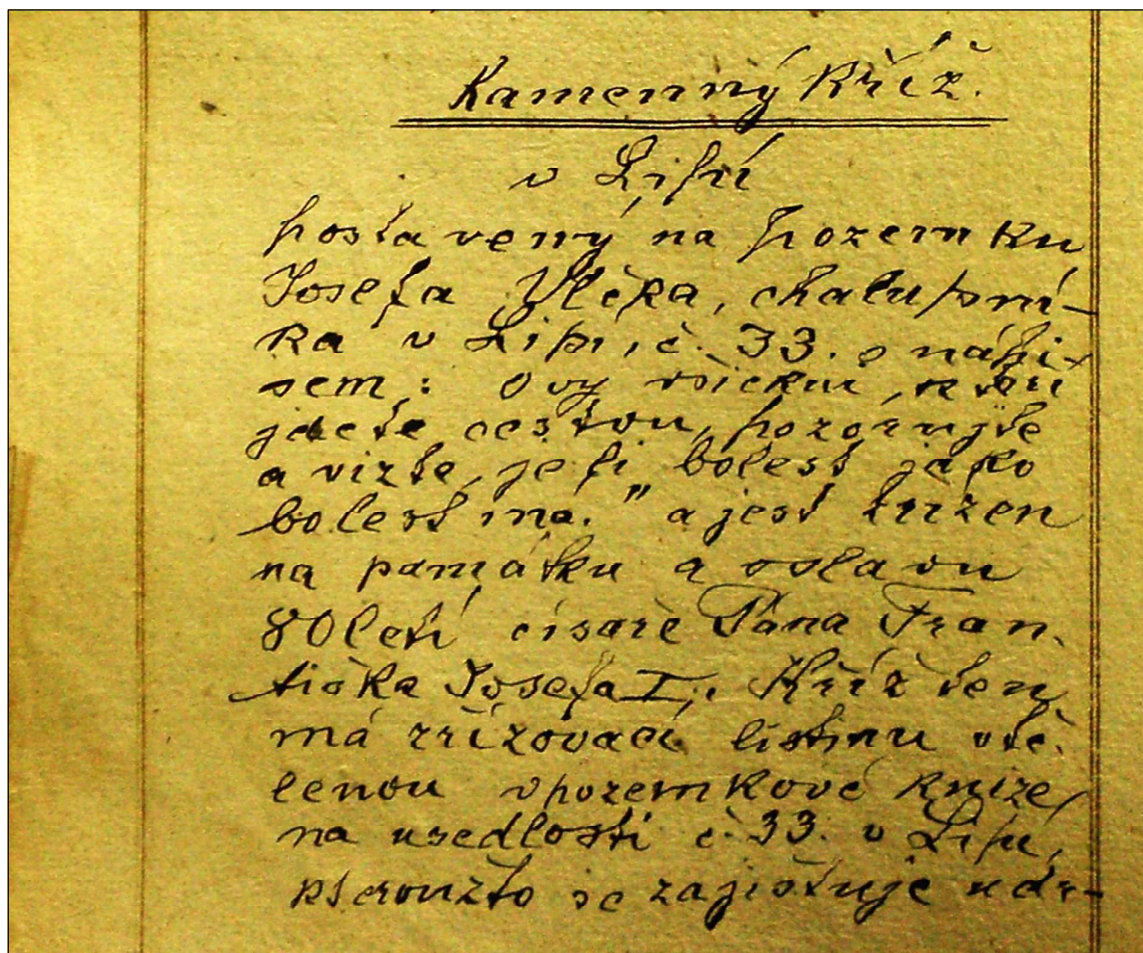 Kamenný kříž.
v Lipí
postavený na pozemku
Josefa Vlčka, chalupní-
ka v Lipí, č. 33. s nápi-
sem: O vy všickni, kteří
jdete cestou, pozorujte
a vizte, je-li bolest jako
bolest má." a jest zřízen
na památku a oslavu
80letí císaře Pána Fran-
tiška Josefa I., Kříž ten
má zřizovací listinu vtě-
lenou v pozemkové knize
na usedlosti č. 33. v Lipí,
kteroužto se zajišťuje udr-